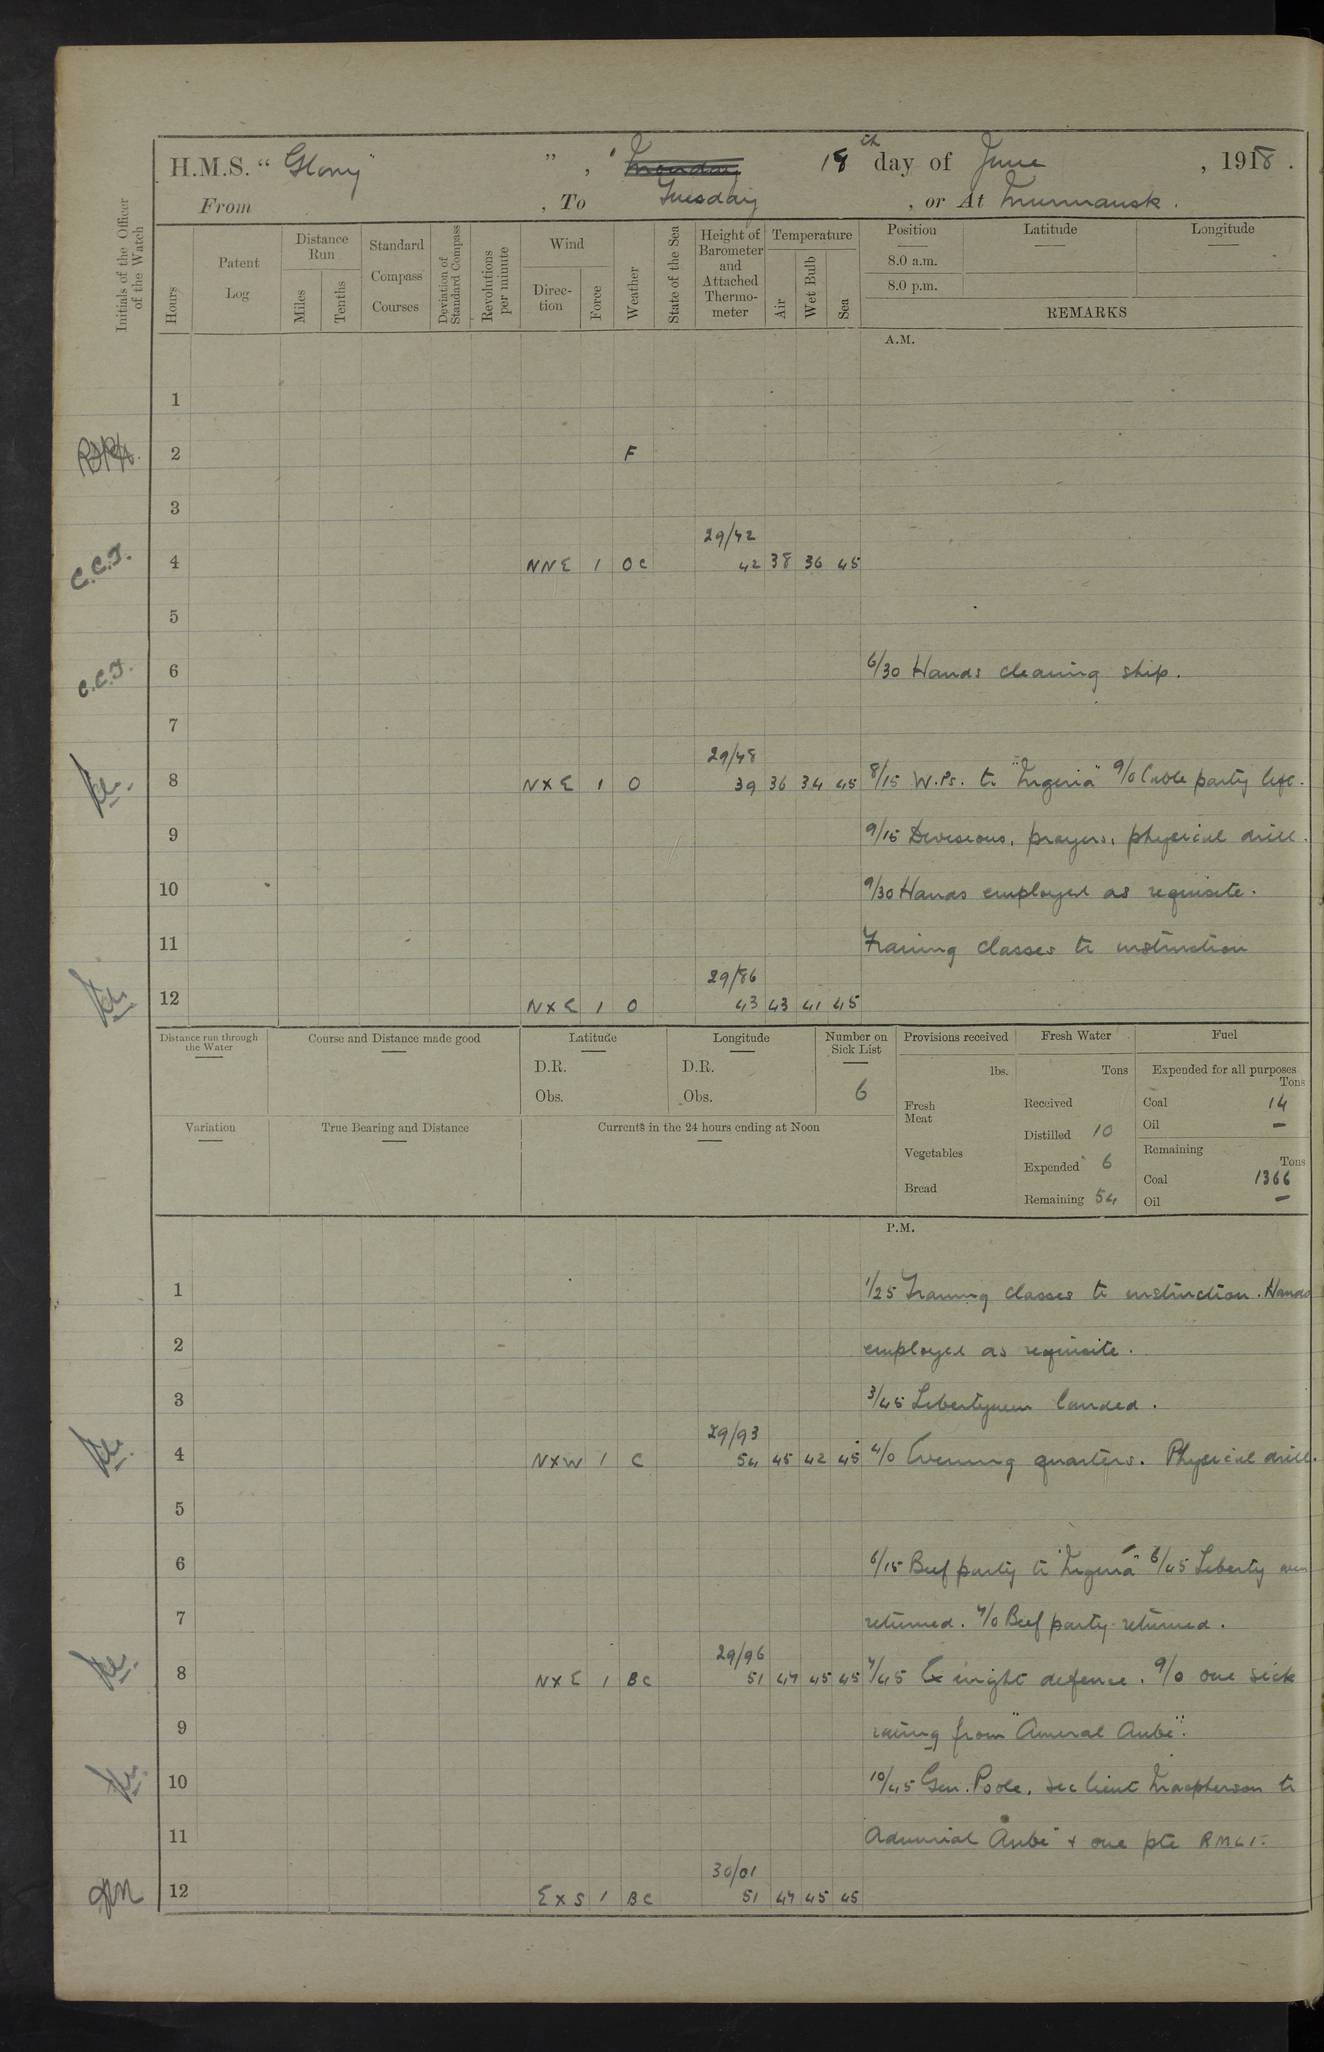 H.M.S. “ Glory ” , Monday 18th day of June , 1918 .
From , To Tuesday , or At Murmansk .
Initials of the Officer of the Watch
Hours
Patent Log
Distance Run
Miles
Tenths
Standard Compass Courses
Deviation of Standard Compass
Revolutions per minute
Wind
Direc-tion
Force
Weather
State of the Sea
Height of Barometer and Attached Thermo-meter
Temperature
Air
Wet Bulb
Sea
Position Latitude Longitude
8.0 a.m.
8.0 p.m.
REMARKS
A.M.
1
2 F
3
29/42
C.C.J. 4 NNE 1 OC 42 38 36 45
5
C.C.J. 6 6/30 Hands cleaning ship.
7
29/48
8 NXE 1 O 39 36 34 45 8/15 W.Ps. to "Nigeria" 9/0 Cable party left.
9 9/15 Divisions, prayers, physical drill.
10 9/30 Hands employed as requisite.
11 Training classes to instruction
29/86
12 NXE 1 O 43 43 41 45
Distance run through the Water
Course and Distance made good
Latitude
D.R.
Obs.
Longitude
D.R.
Obs.
Number on Sick List
6
Variation
True Bearing and Distance
Currents in the 24 hours ending at Noon
Provisions received
lbs.
Fresh Meat
Vegetables
Bread
Fresh Water
Tons
Received
Distilled 10
Expended 6
Remaining 54
Fuel
Expended for all purposes
Tons
Coal 14
Oil —
Remaining
Tons
Coal 1366
Oil —
P.M.
1 1/25 Training classes to instruction. Hands
2 employed as requisite.
3 3/45 Libertymen landed.
29/93
4 NXW 1 C 54 45 42 45 4/0 Evening quarters. Physical drill.
5
6 6/15 Beef party to "Nigeria" 6/45 Liberty men
7 returned. 7/0 Beef party returned.
29/96
8 NXE 1 BC 51 47 45 45 7/45 Ex night defence. 9/0 one sick
9 rating from "Ameral Aube".
10 10/45 Gen. Poole, sec lieut Macpherson to
11 Admiral Aube & one pte RMLI.
30/01
12 EXS 1 BC 51 47 45 45